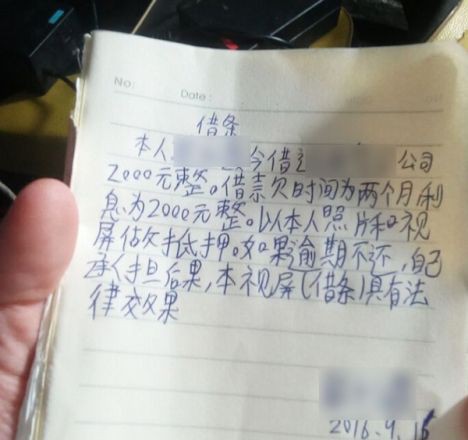 No:
Date:
借条
本人 今借 公司
2000元整。借款欠时间为两个月利
息为2000元整。以本人照片和视
屏做抵押。如果逾期不还,自己
承担后果,本视屏(借条)具有法
律效果
2016.9.15